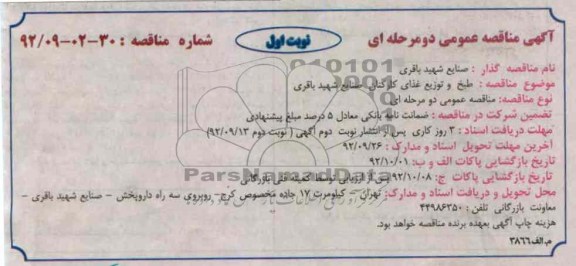 آگهی مناقصه عمومی دو مرحله ای
نوبت اول
شماره مناقصه : ۳۰-۰۲-۹۲/۰۹
نام مناقصه گذار : صنایع شهید باقری
موضوع مناقصه : طبخ و توزیع غذای کارکنان صنایع شهید باقری
نوع مناقصه: مناقصه عمومی دو مرحله ای
تضمین شرکت در مناقصه : ضمانت نامه بانکی معادل ۵ درصد مبلغ پیشنهادی
مهلت دریافت اسناد : ۳ روز کاری پس از انتشار نوبت دوم آگهی ( نوبت دوم ۹۲/۰۹/۱۳)
آخرین مهلت تحویل اسناد و مدارک : ۹۲/۰۹/۲۶
تاریخ بازگشایی پاکات الف و ب: ۹۲/۱۰/۰۱
تاریخ بازگشایی پاکات ج: ۹۲/۱۰/۰۸ پس از ارزیابی توسط کمیته فنی بازرگانی
محل تحویل و دریافت اسناد و مدارک: تهران – کیلومرت ۱۷ جاده مخصوص کرج- روبروی سه راه داروپخش - صنایع شهید باقری -
معاونت بازرگانی تلفن : ۴۴۹۸۶۳۵۰
هزینه چاپ آگهی بعهده برنده مناقصه خواهد بود.
م.الف ۳۸۶۶
ParsNamadData